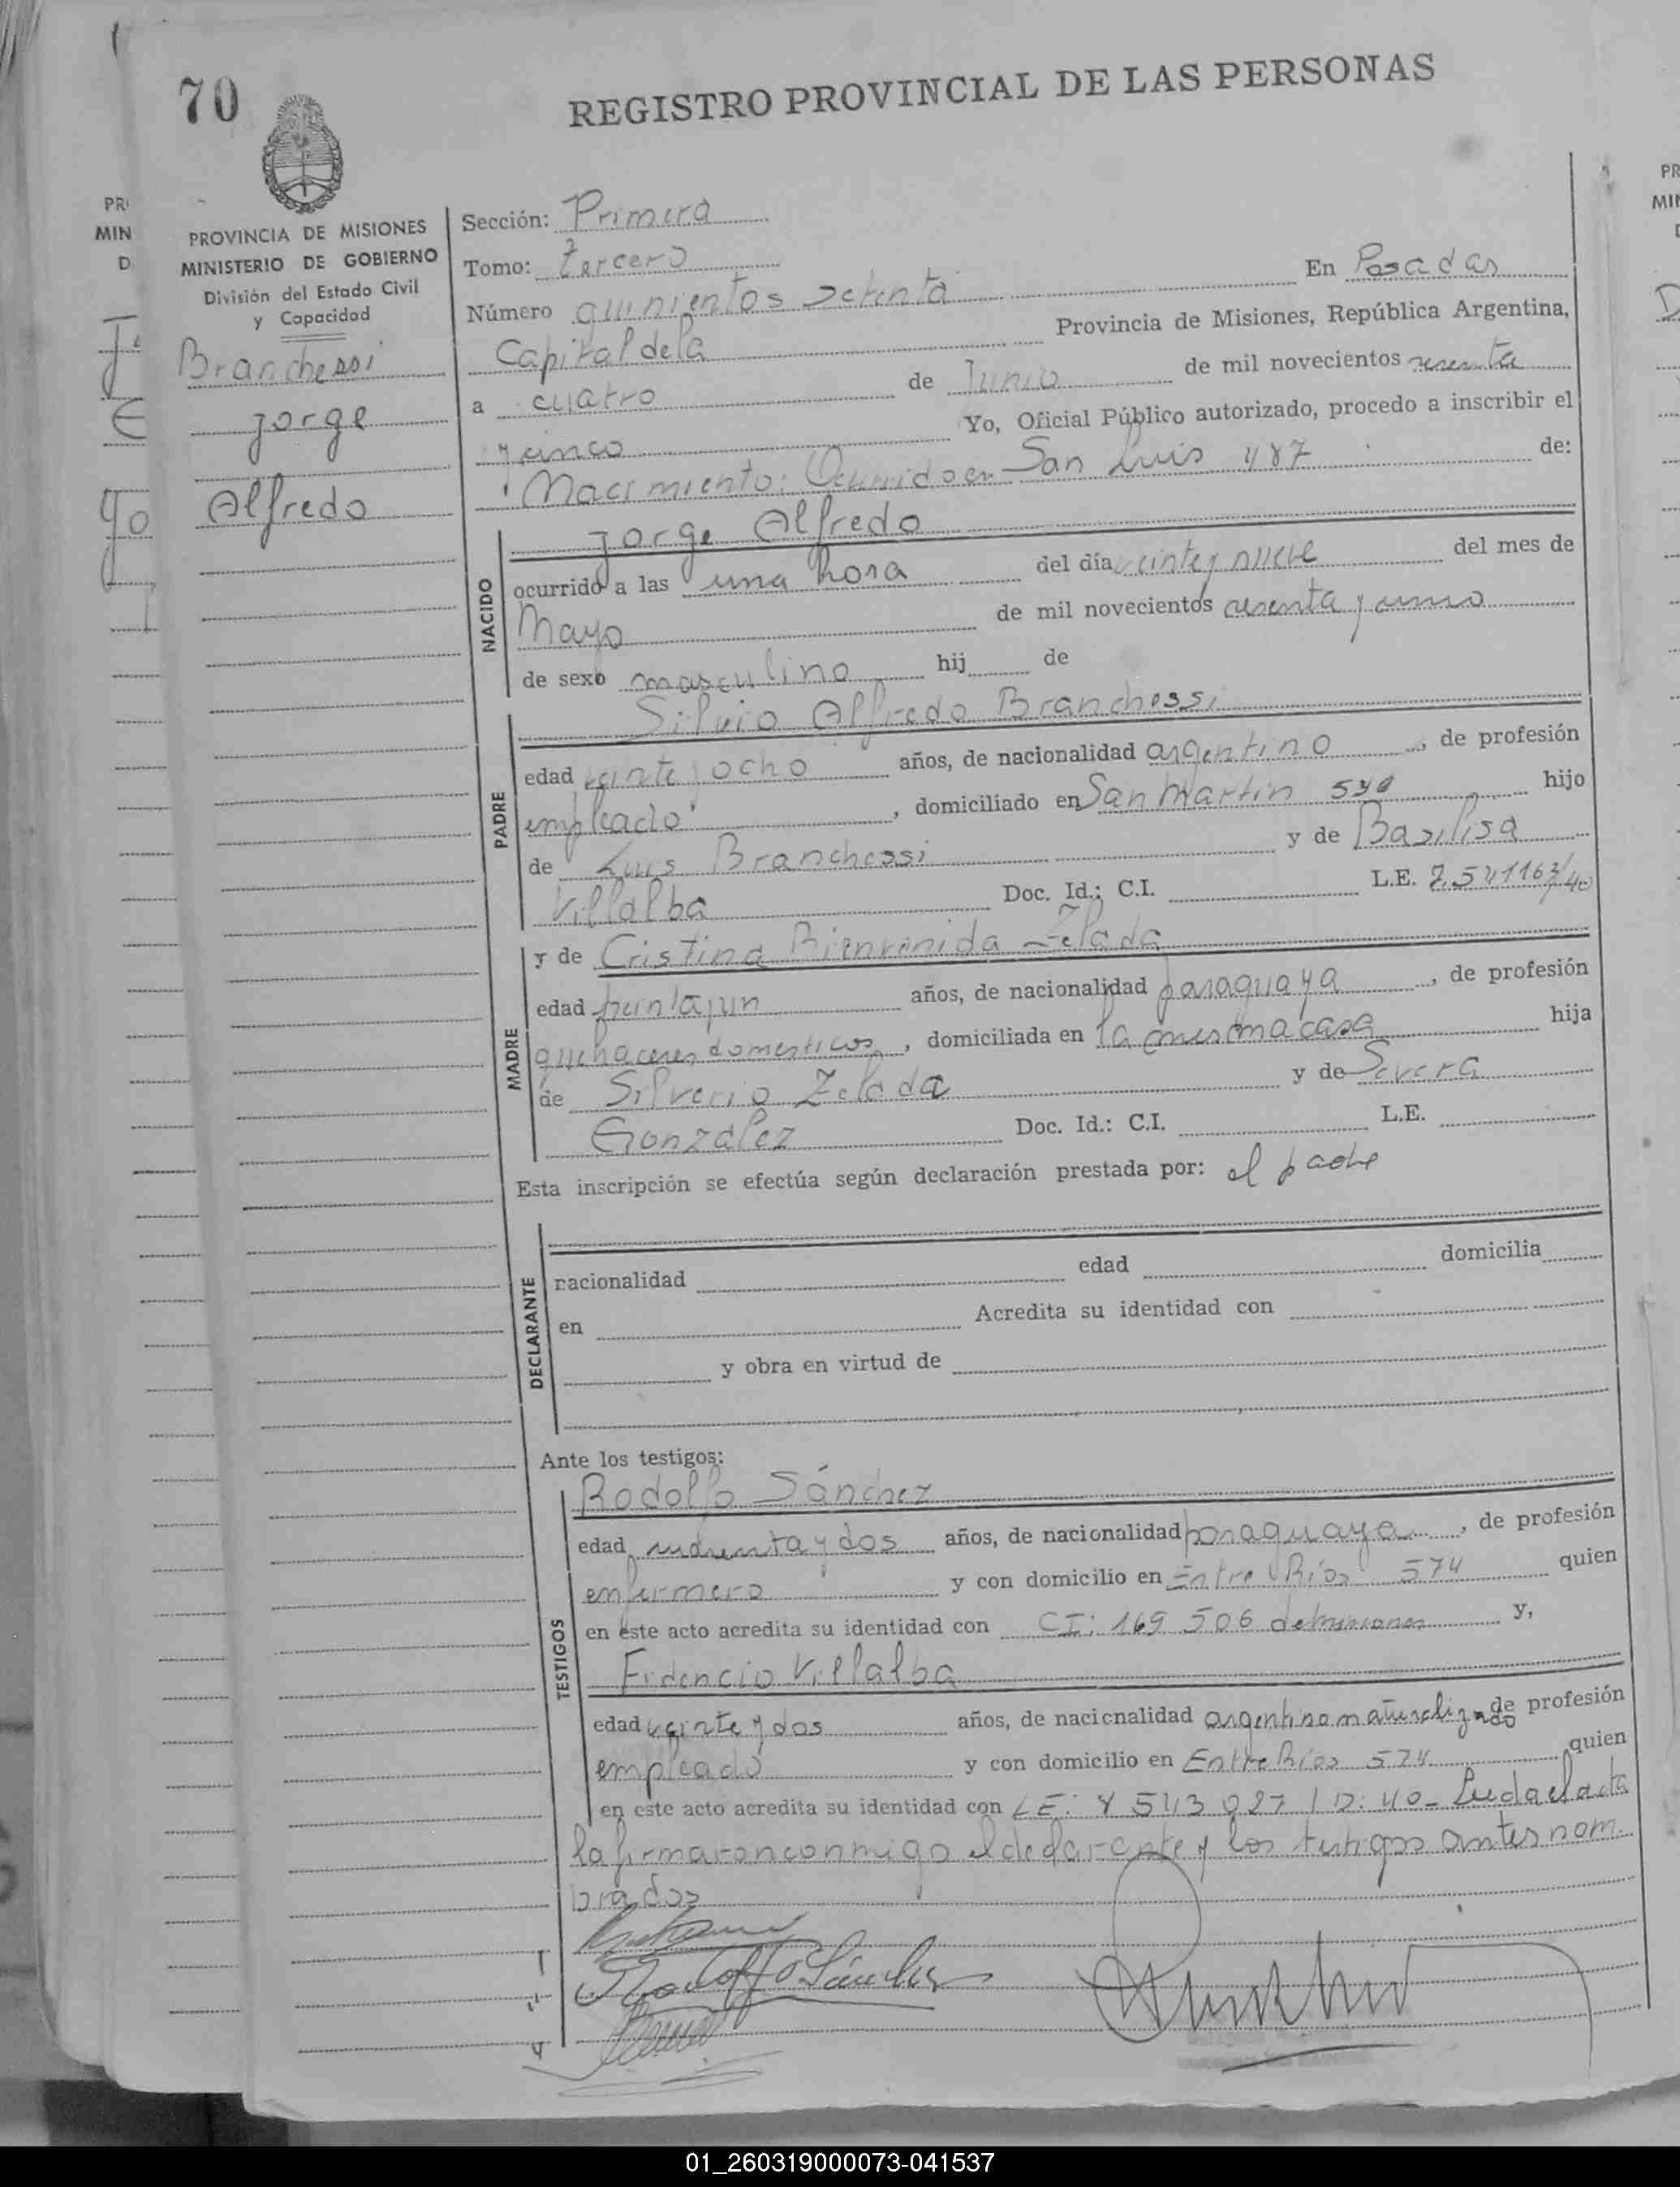 70
REGISTRO PROVINCIAL DE LAS PERSONAS
PROVINCIA DE MISIONES
MINISTERIO DE GOBIERNO
División del Estado Civil
y Capacidad
Branchessi
Jorge
Alfredo
Sección: Primera
Tomo: tercero
Número quinientos setenta En Posadas
Capital de la Provincia de Misiones, República Argentina,
a cuatro de Junio de mil novecientos sesenta
y cinco Yo, Oficial Público autorizado, procedo a inscribir el
Nacimiento: Ocurrido en San Luis 487 de:
NACIDO
Jorge Alfredo
ocurrido a las una hora del día veinte y nueve del mes de
Mayo de mil novecientos sesenta y uno
de sexo masculino hij de
PADRE
Silvio Alfredo Branchessi
edad veinte y ocho años, de nacionalidad argentino, de profesión
empleado, domiciliado en San Martín hijo
de Luis Branchessi y de Basilisa
Villalba Doc. Id.: C.I. L.E.
MADRE
y de Cristina Bienvenida Zelada
edad treinta y un años, de nacionalidad paraguaya, de profesión
quehaceres domesticos, domiciliada en la misma casa hija
de Silverio Zelada y de Severa
González Doc. Id.: C.I. L.E.
Esta inscripción se efectúa según declaración prestada por: el padre
DECLARANTE
nacionalidad edad domicilia
en Acredita su identidad con
y obra en virtud de
Ante los testigos:
TESTIGOS
Rodolfo Sánchez
edad cuarenta y dos años, de nacionalidad paraguaya, de profesión
enfermero y con domicilio en Entre Ríos 574 quien
en este acto acredita su identidad con CI: 169 506 de Misiones y,
Fidencio Villalba
edad veinte y dos años, de nacionalidad argentino naturalizado de profesión
empleado y con domicilio en Entre Rios 574 quien
en este acto acredita su identidad con LE: D: 40- Leida el acta
la firmaron conmigo el declarante y los testigos antes nom
brados
Rodolfo Sánchez
01_260319000073-041537